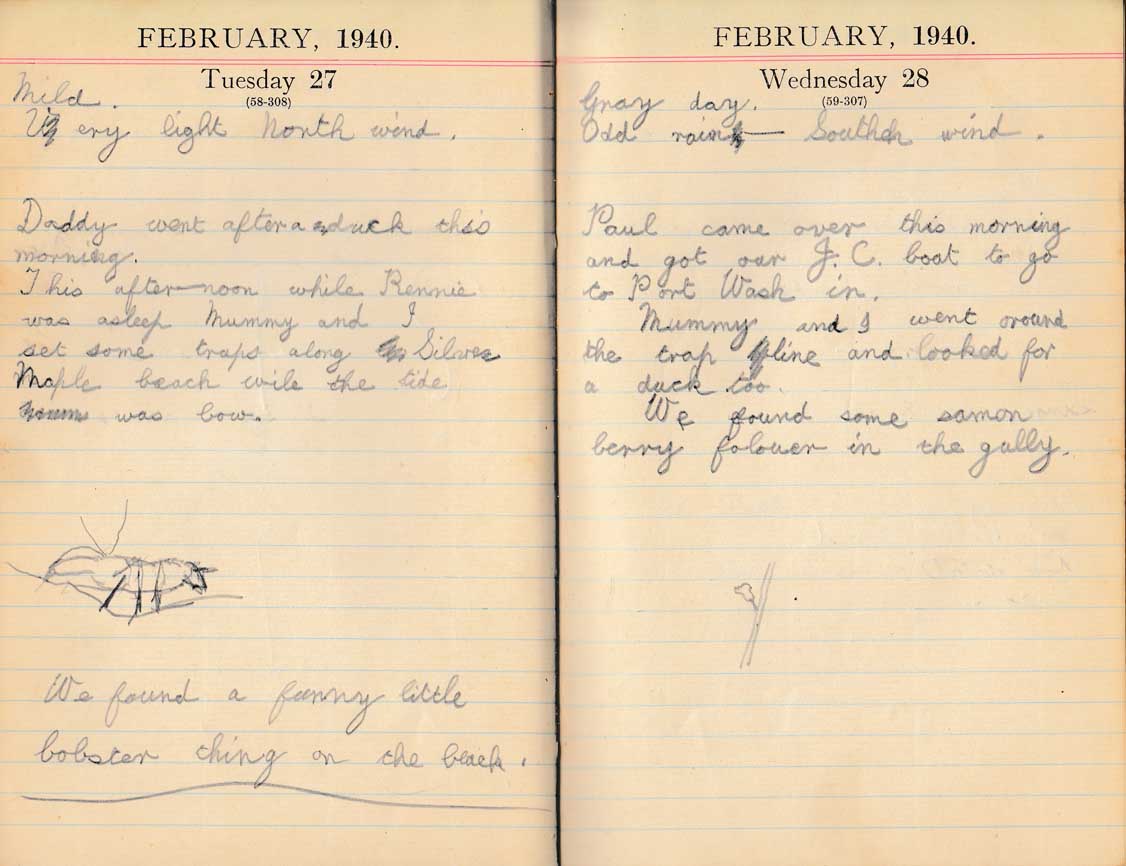 FEBRUARY, 1940.
Tuesday 27
(58-308)
Mild.
Very light North wind.
Daddy went after a duck this
morning.
This after-noon while Rennie
was asleep Mummy and I
set some traps along Silver
Maple beach wile the tide
was bow.
We found a funny little
bobster thing on the beach.
FEBRUARY, 1940.
Wednesday 28
(59-307)
Gray day.
Odd rain — South wind.
Paul came over this morning
and got our J. C. boat to go
to Port Wash in.
Mummy and I went oround
the trap line and looked for
a duck too.
We found some samon
berry folouer in the gully.